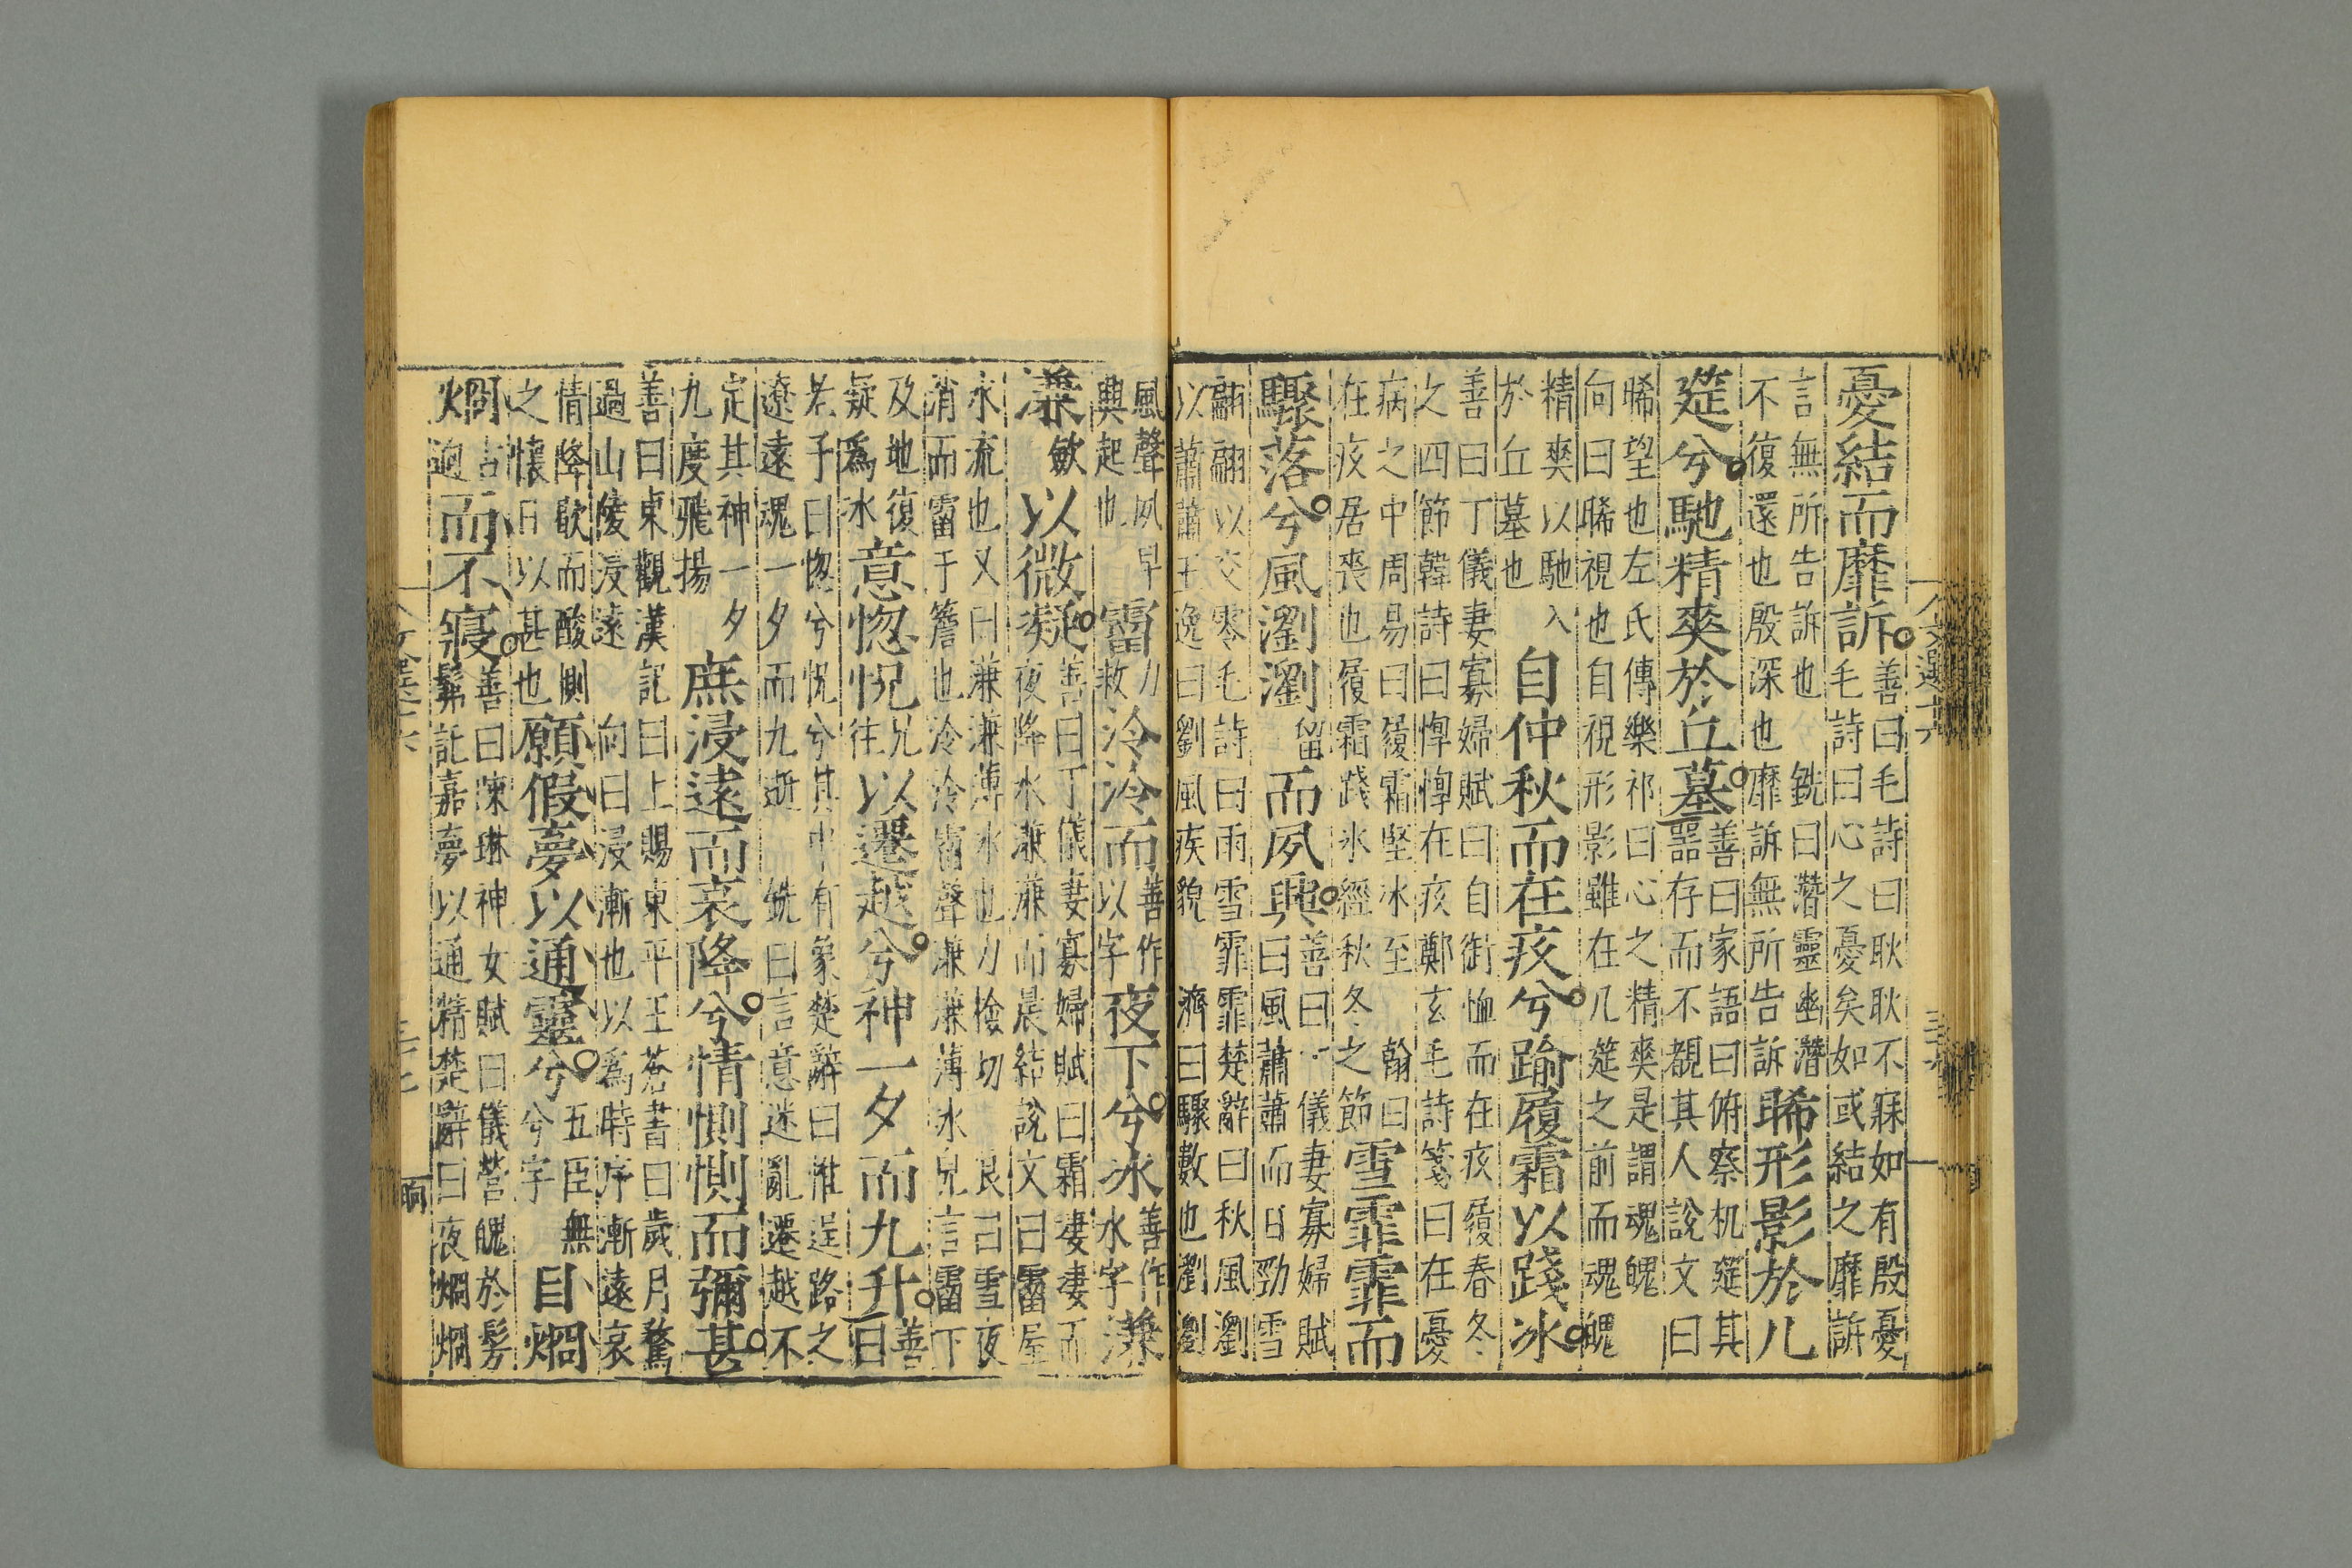 憂結而靡訴善曰毛詩曰耿耿不寐如有殷憂毛詩曰心之憂矣如或結之靡訴
言無所告訴也銑曰潛靈幽潛不復還也殷深也靡訴無所告訴睎形影於几
筵兮馳精爽於丘墓善曰家語曰俯察机筵其器存而不覩其人說文曰
睎望也左氏傳樂祁曰心之精爽是謂魂魄向曰睎視也自視形影雖在几筵之前而魂魄
精爽以馳入於丘墓也自仲秋而在疚兮踰履霜以踐冰
善曰丁儀妻寡婦賦曰自銜恤而在疚履春冬之四節韓詩曰惸惸在疚鄭玄毛詩箋曰在憂
病之中周易曰履霜堅冰至翰曰在疚居喪也履霜踐氷經秋冬之節雪霏霏而
驟落兮風瀏瀏留而夙興善曰儀妻寡婦賦曰風蕭蕭而日勁雪
翩翩以交零毛詩曰雨雪霏霏楚辭曰秋風瀏以蕭蕭王逸曰劉風疾貌濟曰驟數也瀏瀏
風聲夙早興起也霤力救泠泠而善作以字夜下兮冰善作水字溓
溓歛以微凝善曰丁儀妻寡婦賦曰霜凄凄而夜降水溓溓而晨結說文曰霤屋
水流也又曰溓溓薄冰也力撿切良曰雪夜消而霤于簷也泠泠霤聲溓溓薄冰皃言霤下
及地復疑爲水意惚怳兄往以遷越兮神一夕而九升善曰
老子曰惚兮怳兮其中有象楚辭曰惟逞路之遼遠魂一夕而九逝銑曰言意迷亂遷越不
定其神一夕九度飛揚庶浸遠而哀降兮情惻惻而彌甚
善曰東觀漢記曰上賜東平王蒼書曰歲月騖過山陵浸遠向曰浸漸也以爲時序漸遠哀
情降歇而酸惻之懷日以甚也願假夢以通靈兮五臣無兮字目炯
炯古迥而不寢善曰陳琳神女賦曰儀營魄於髣髴託嘉夢以通精楚辭曰夜炯炯